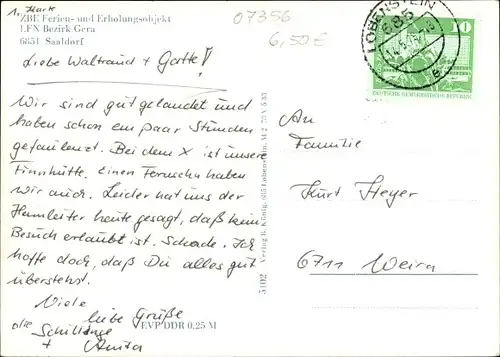 1. Mark
07356
6,50 €
ZBE Ferien- und Erholungsobjekt
LFN Bezirk Gera
6851 Saaldorf
Liebe Waltraud + Gatte!
Wir sind gut gelandet und
haben schon ein paar Stunden
gefaulenzt. Bei dem X ist unsere
Finnhütte. Einen Fernseh haben
wir auch. Leider hat uns der
Heimleiter heute gesagt, daß kein
Besuch erlaubt ist. Schade. Ich
hoffe doch, daß Du alles gut
überstehst.
Viele
liebe Grüße
die Schillinge
+ Anita
EVP DDR 0,25 M
5102 Verlag R. König, 685 Lobenstein
LOBENSTEIN
685
10
DEUTSCHE DEMOKRATISCHE REPUBLIK
An
Familie
Kurt Heyer
6711 Weira